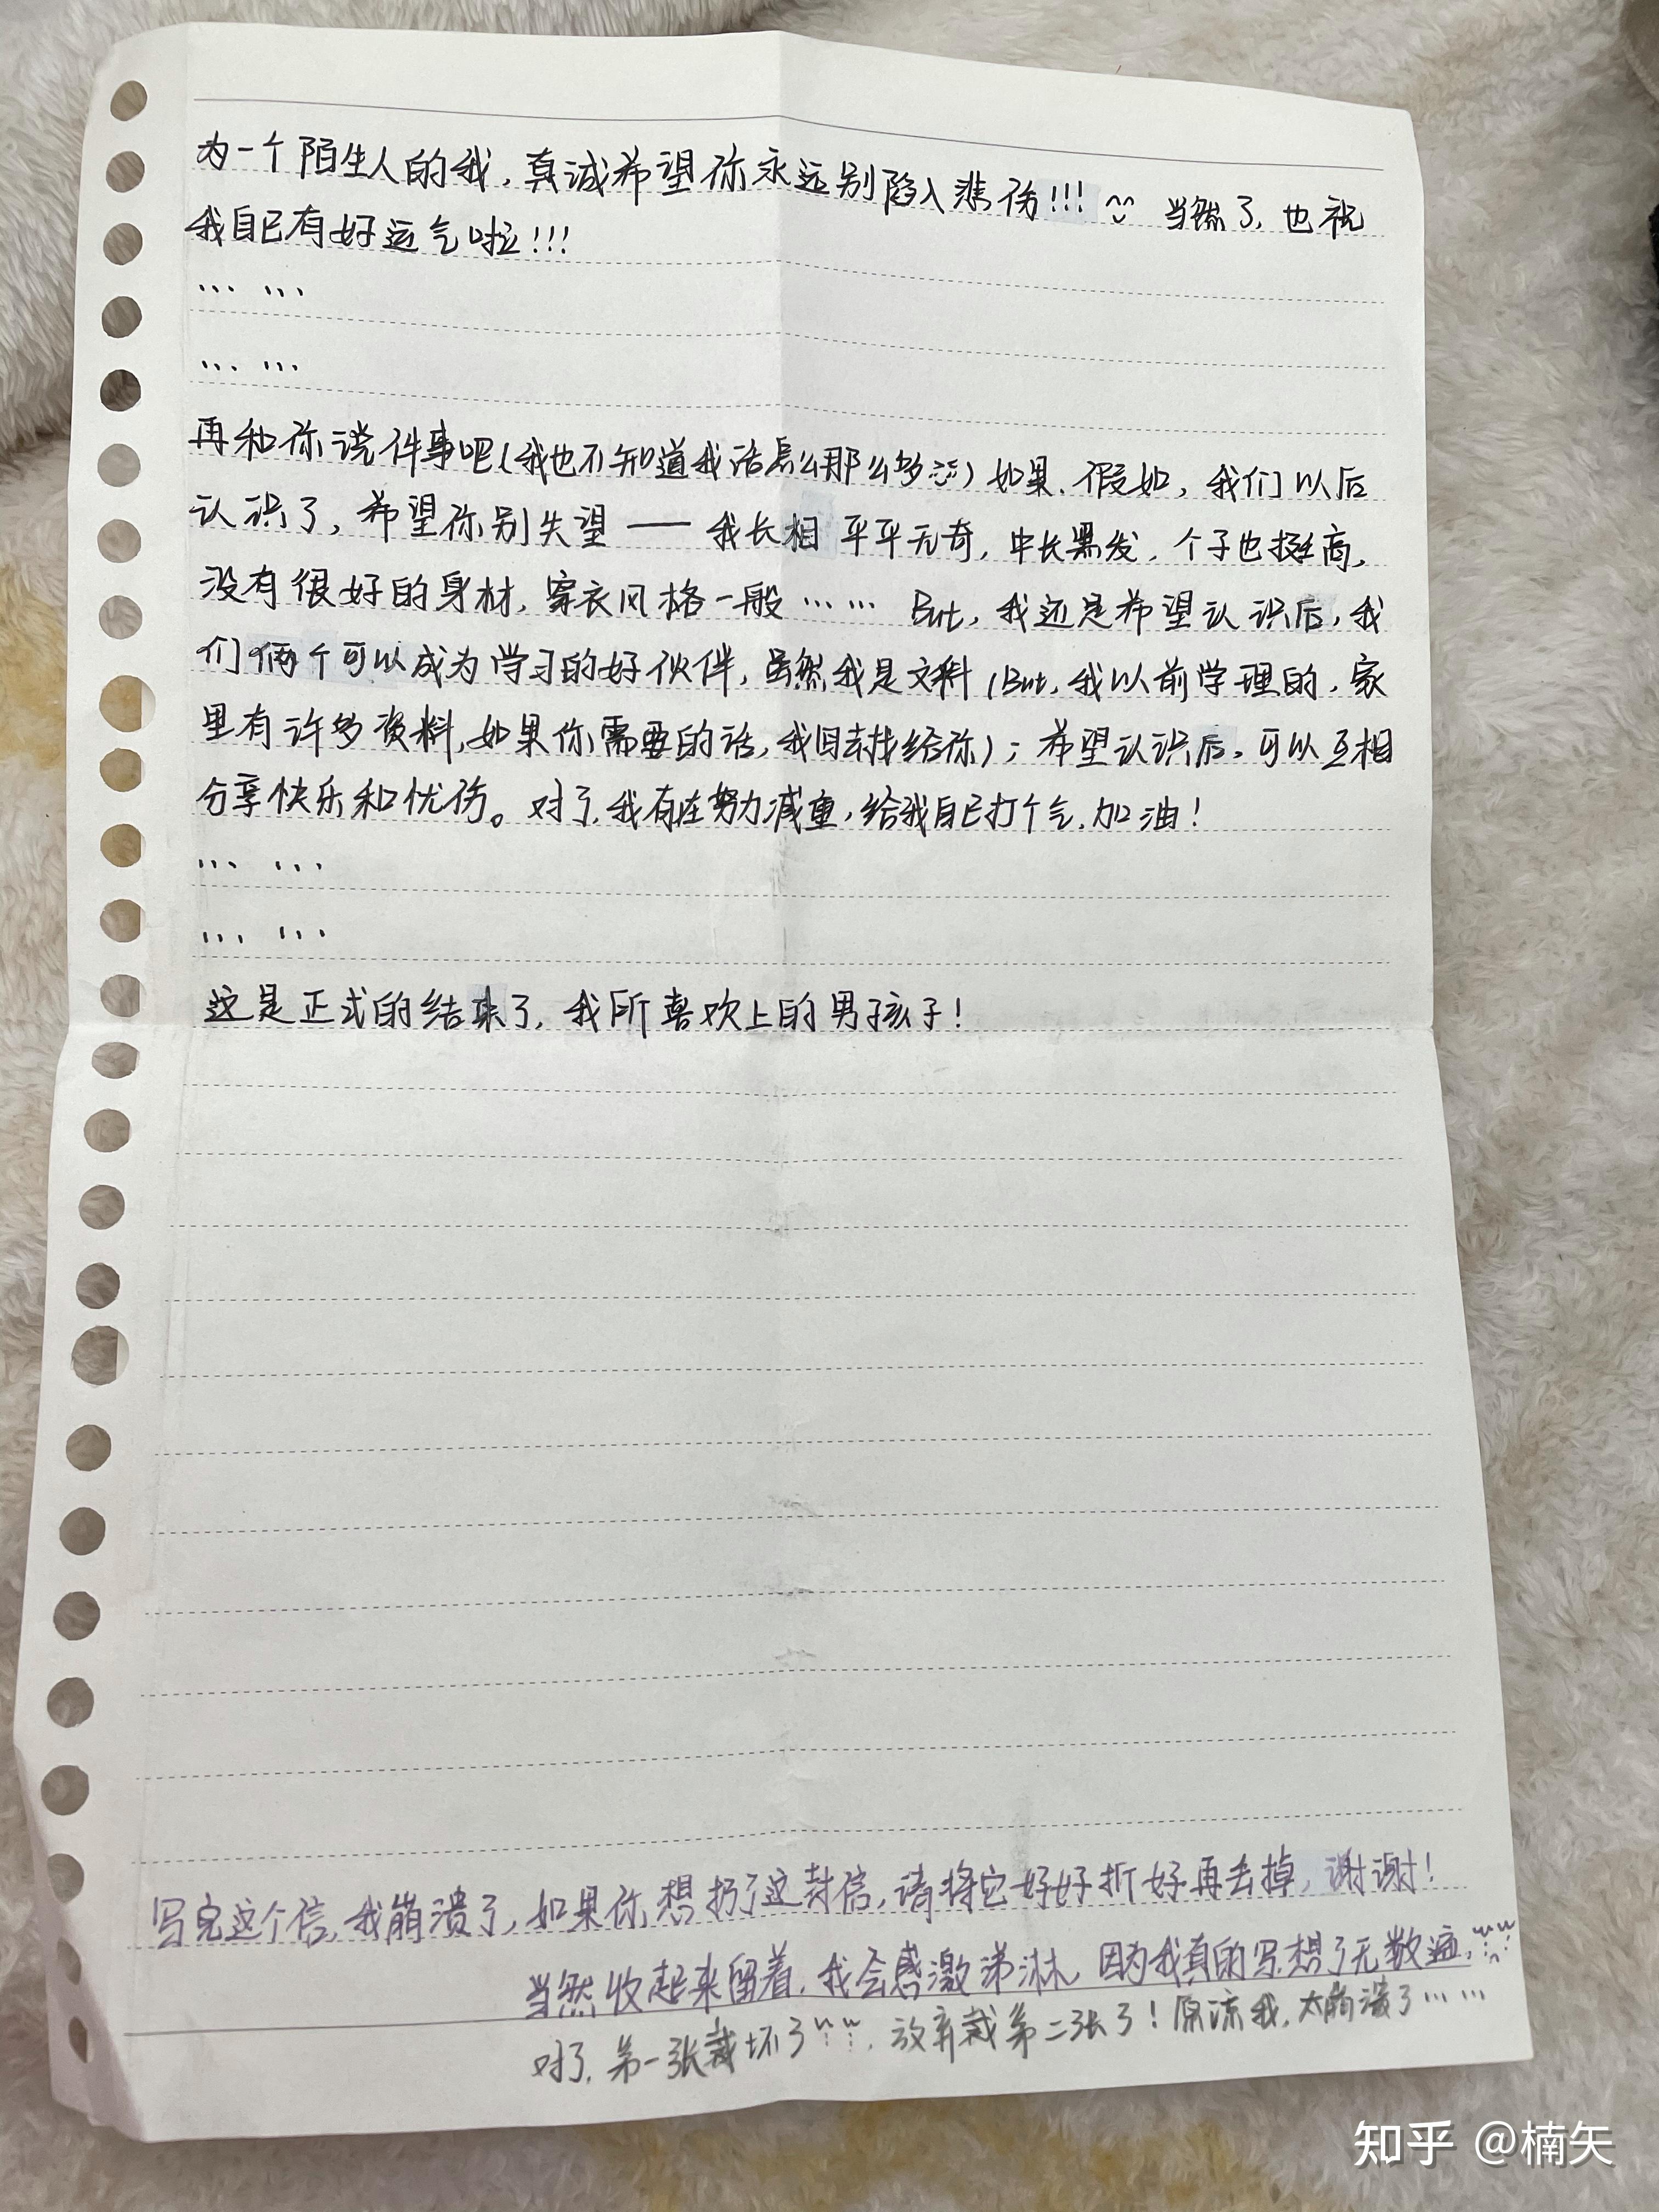 为一个陌生人的我，真诚希望你永远别陷入悲伤!!! 当然了，也祝
我自己有好运气啦!!!
... ...
... ...
再和你说件事吧(我也不知道我话怎么那么多)如果、假如，我们以后
认识了，希望你别失望——我长相平平无奇，中长黑发，个子也挺高，
没有很好的身材，穿衣风格一般…… But，我还是希望认识后，我
们俩个可以成为学习的好伙伴，虽然我是文科(But，我以前学理的，家
里有许多资料，如果你需要的话，我回去找给你)；希望认识后，可以互相
分享快乐和忧伤。对了，我有在努力减重，给我自己打个气，加油！
... ...
... ...
这是正式的结束了，我所喜欢上的男孩子！
写完这个信，我崩溃了，如果你想扔了这封信，请将它好好折好再去掉，谢谢！
当然收起来留着，我会感激涕淋，因为我真的写想了无数遍，
对了，第一张裁坏了，放弃裁第二张了！原谅我，太崩溃了……
知乎 @楠矢